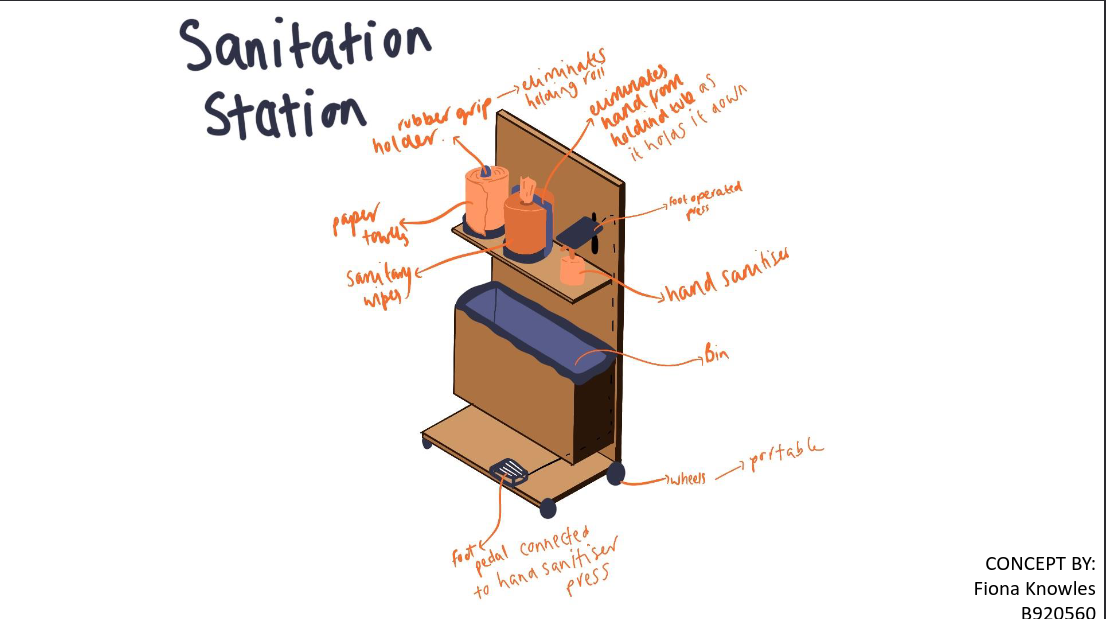 Sanitation
Station
rubber grip
holder.
eliminates
holding roll
eliminates
hand from
holding tub as
it holds it down
foot operated
press
paper
towels
sanitary
wipes
hand sanitiser
Bin
wheels
portable
foot
pedal connected
to hand sanitiser
press
CONCEPT BY:
Fiona Knowles
B920560